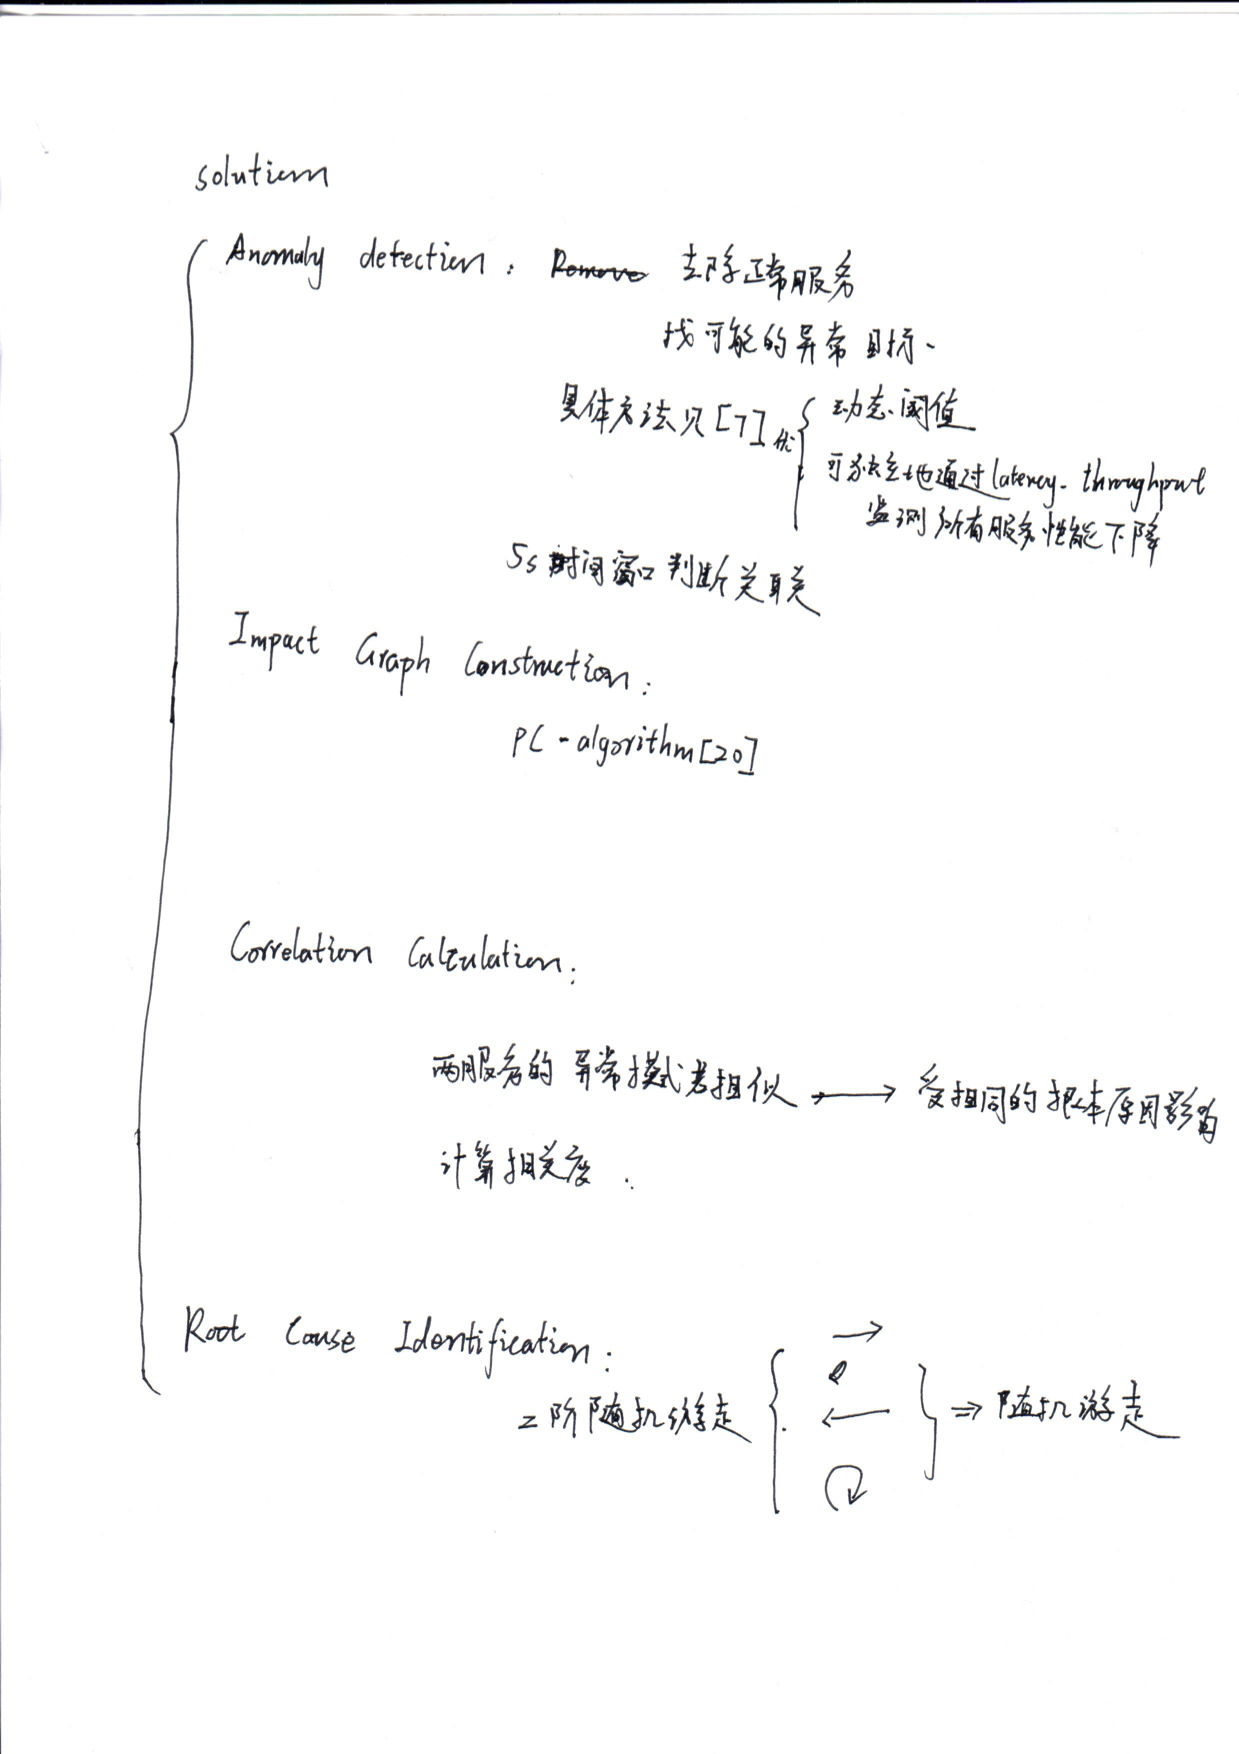 solution
Anomaly detection: Remove 去除正常服务
找可能的异常目标.
具体方法见[7] 优 { 动态阈值
可独立地通过latency. throughput
监测所有服务性能下降
5s 时间窗口判断关联关
Impact Graph Construction:
PC-algorithm[20]
Correlation Calculation:
两服务的异常模式若相似 → 受相同的根本原因影响
计算相关度.
Root Cause Identification:
→
二阶随机游走 { ← } ⇒ 随机游走